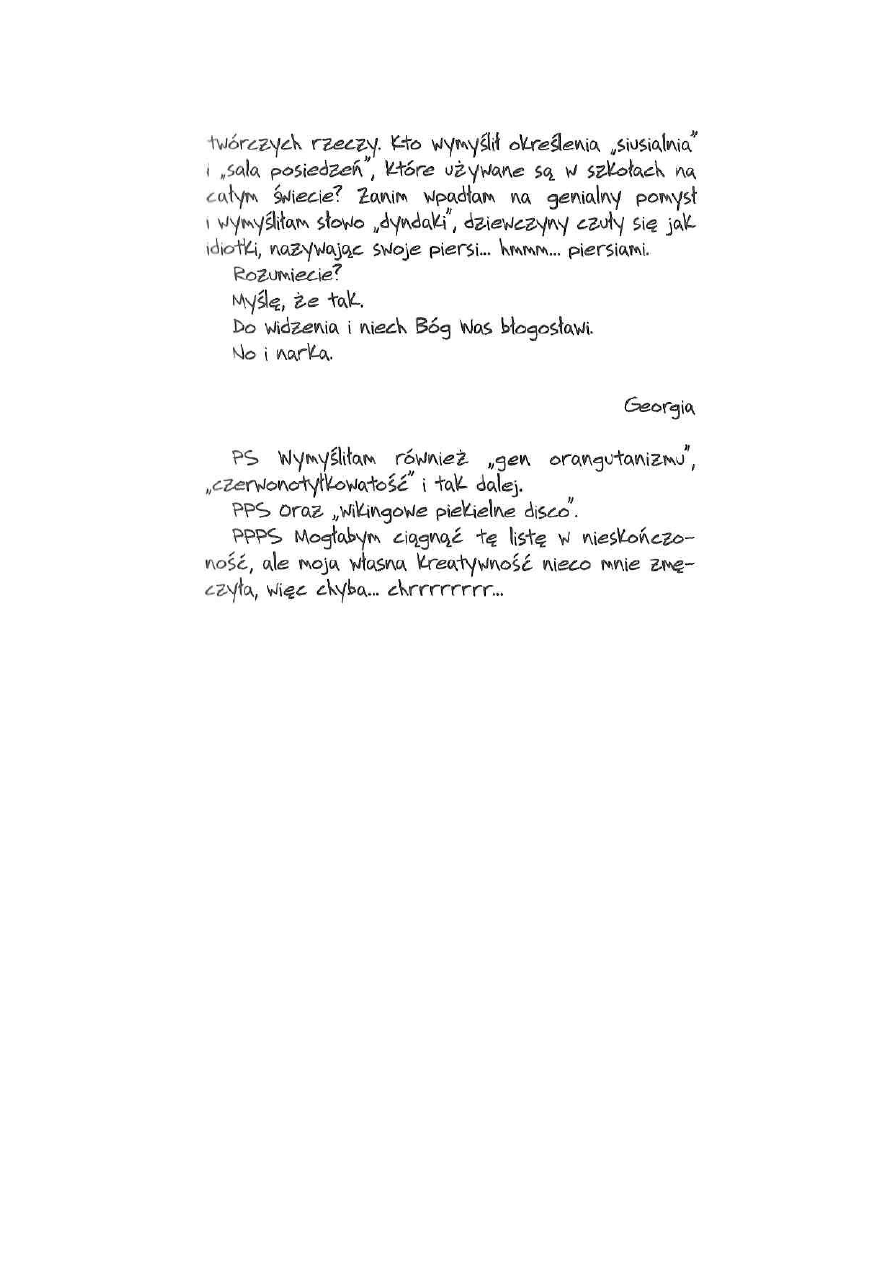 twórczych rzeczy. Kto wymyślił określenia „siusialnia”
i „sala posiedzeń”, które używane są w szkołach na
całym świecie? Zanim wpadłam na genialny pomysł
i wymyśliłam słowo „dyndaki”, dziewczyny czuły się jak
idiotki, nazywając swoje piersi... hmmm... piersiami.
Rozumiecie?
Myślę, że tak.
Do widzenia i niech Bóg Was błogosławi.
No i narka.
Georgia
PS Wymyśliłam również „gen orangutanizmu”,
„czerwonotyłkowatość” i tak dalej.
PPS Oraz „wikingowe piekielne disco”.
PPPS Mogłabym ciągnąć tę listę w nieskończo-
ność, ale moja własna kreatywność nieco mnie zmę-
czyła, więc chyba... chrrrrrrrr...